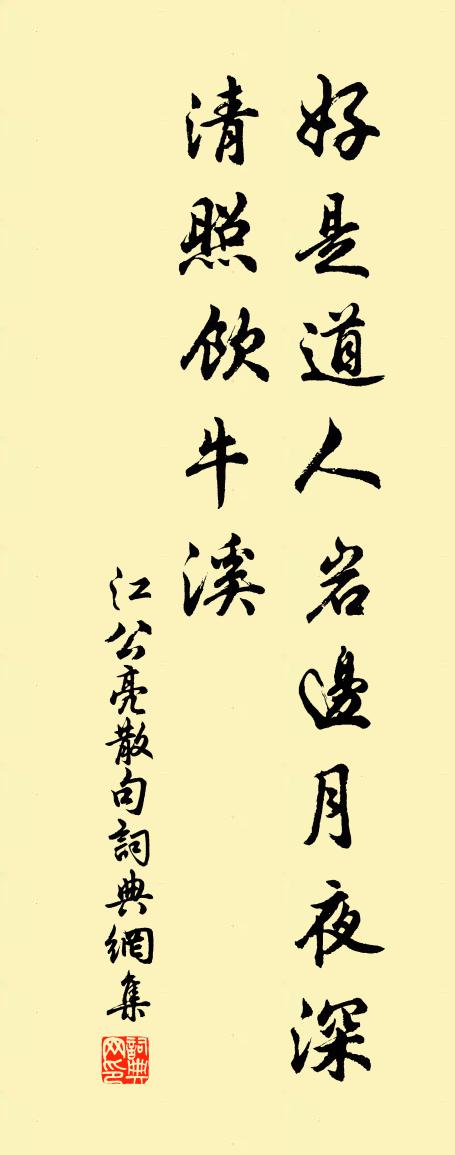 好是道人岩邊月夜深
清照飲牛溪
江公亮散句詞典網集
詞典
网印